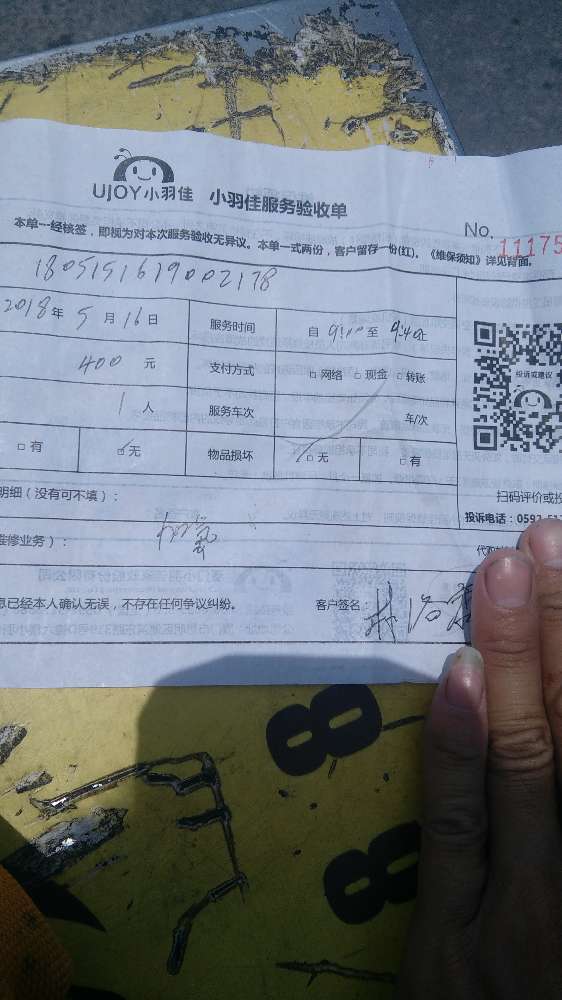 UJOY小羽佳 小羽佳服务验收单
No. 11175
本单一经核签，即视为对本次服务验收无异议。本单一式两份，客户留存一份(红)。《维保须知》详见背面。
1805151619002178
2018年 5 月 16 日 服务时间 自 9:00 至 9:40止
400 元 支付方式 □ 网络 □ 现金 □ 转账
投诉或建议
1 人 服务车次 车/次
□ 有 □ 无 物品损坏 □ 无 □ 有
明细（没有可不填）：
扫码评价或投
投诉电话：0592-
维修业务）：
息已经本人确认无误，不存在任何争议纠纷。 客户签名：
8
8